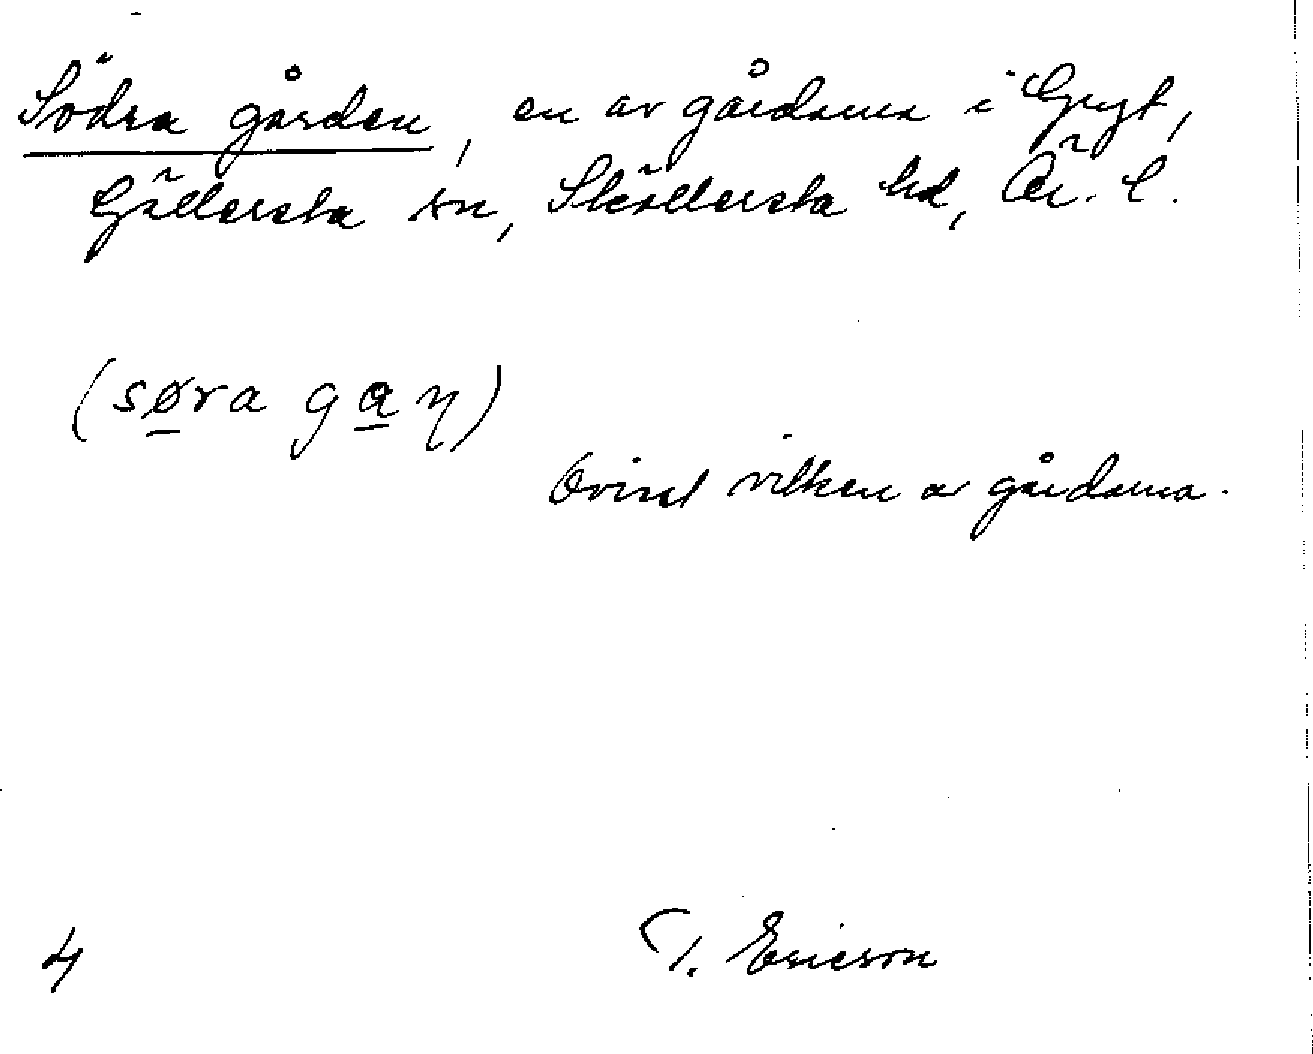 Södra gården, en av gårdarna i Gryt,
Gällersta sn, Sköllersta hd, Ör. l.
(søra gaη)
Ovisst vilken av gårdarna.
4 T. Ericson